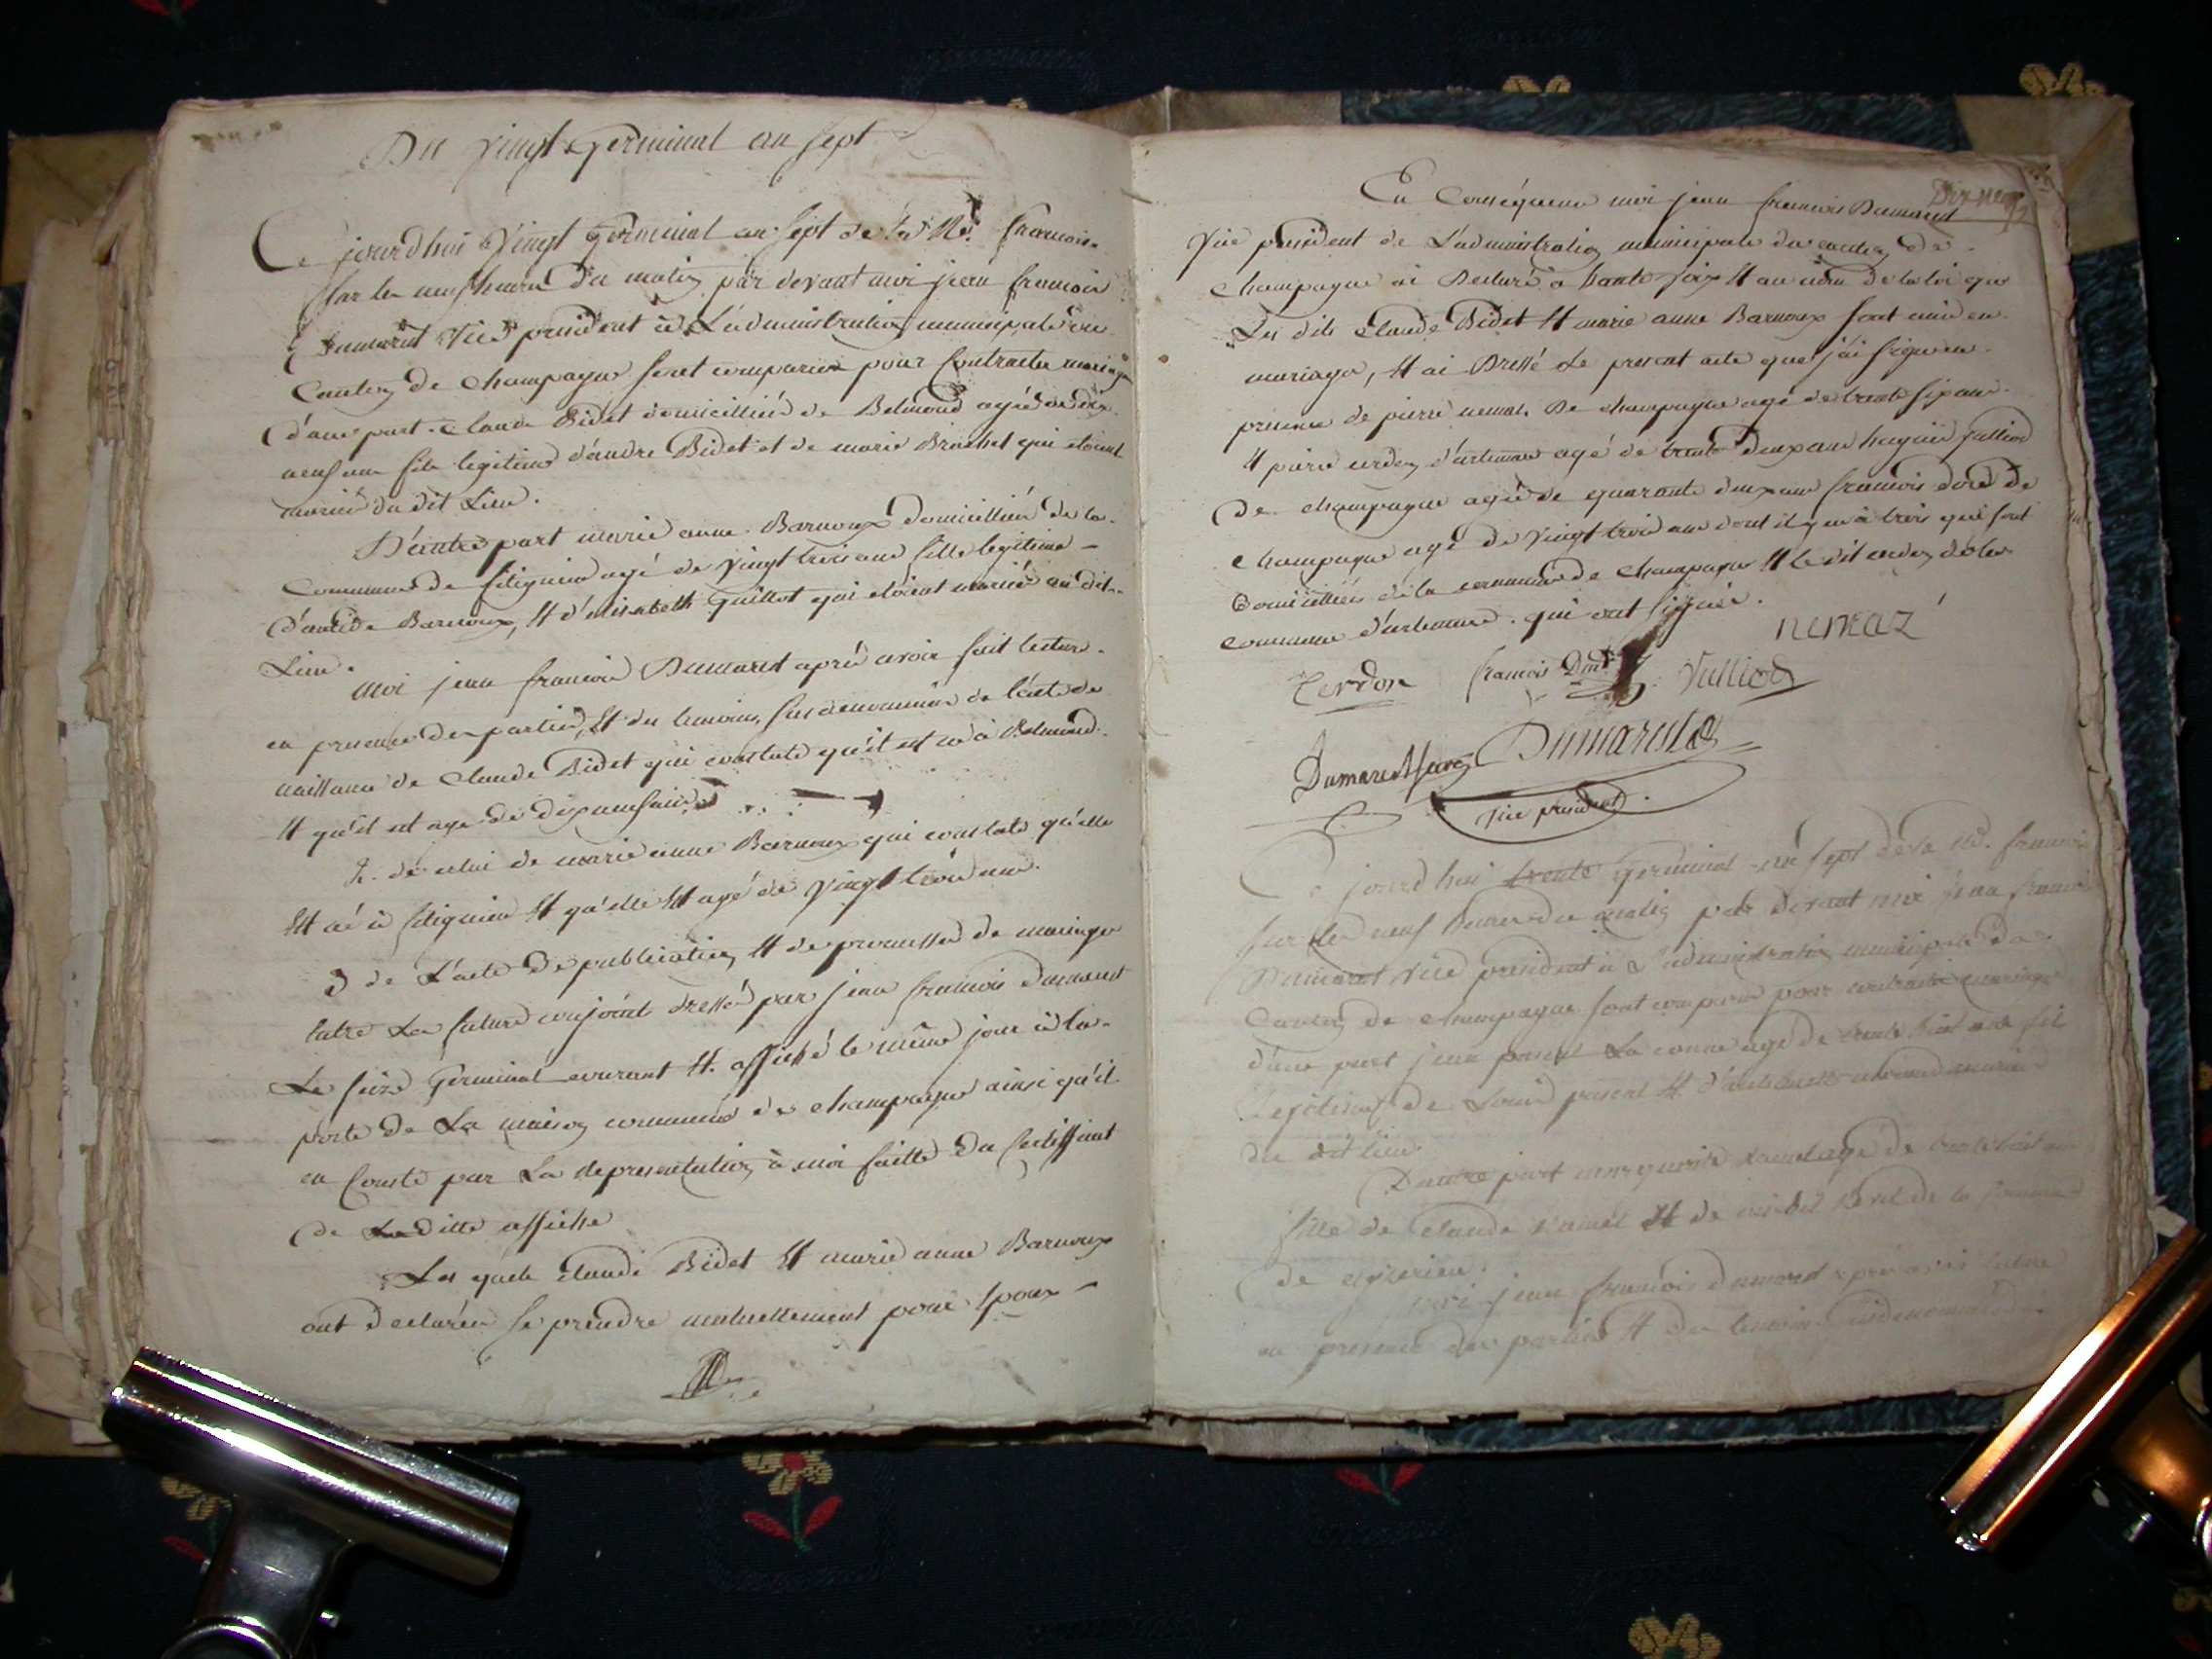 Du vingt Germinal an sept
Ce jourd'hui vingt germinal an sept de la Re. francoise
sur les neuf heures du matin par devant moi jean francois
Dumarest vice president à L'administration municipale du
Canton de Champagne sont comparus pour contracter mariage
d'une part Claude Bidet domicillié de Belmond agé de dix
neuf ans fils legitime d'andre Bidet et de marie Brachet qui etoient
mariés du dit Lieu.
D'autre part marie anne Barnoux domicilliée de la
Commune de fitignieu agé de vingt trois ans fille legitime
Barnoux, et d'elisabeth Guillot qui etoient mariés au dit
Lieu.
moi jean francois Dumarest aprés avoir fait lecture
en presence des parties, et des temoins, sus denommés de l'acte de
naissance de Claude Bidet qui constate qu'il est né à Belmond
et qu'il est age de dix neuf ans
2. de celui de marie anne Barnoux qui constate qu'elle
est né à fitignieu et qu'elle est agé de vingt trois ans.
3 de L'acte de publication et de promesse de mariage
entre Les futurs conjoint dressé par jean francois dumarest
Le seize Germinal courant et affiché le même jour à la
porte de La maison commune de champagne ainsi qu'il
en Conste par La representation à moi faitte du certifficat
de La ditte affiche
Les quels Claude Bidet et marie anne Barnoux
ont declarés se prendre mutuellement pour epoux
Dix neuf
En Conséquence moi jean francois Dumarest
vice president de L'administration municipale du canton de
champagne ai Declaré a haute voix et au nom de la loi que
Les dits Claude Bidet et marie anne Barnoux sont unis en
mariage, et ai Dressé Le present acte que j'ai signé en
presence de pierre nemoz De champagne agé de trente six ans
et pierre cerdon d'artemare agé de trente deux ans vullied
De champagne agé de quarante deux ans francois dord de
champagne agé de vingt trois ans dont il y en à trois qui sont
Domicilliés de la commune de Champagne et le dit cerdon de la
commune d'artemare. qui ont signés.
nemoz
Cerdon francois Dord Vullied
Dumarest Dumarest
vice president
Ce jourd'hui trente Germinal an sept de la Re. francoise
sur les neuf heures du matin par Devant moi jean francois
Dumarest vice president à L'administration municipale du
Canton de champagne sont comparus pour contracter mariage
d'une part jean pascal agé de trente huit ans fils
Legitime de Louis pascal et
du dit lieu
D'autre part marguerite agé de
fille de Claude et de de la commune
de
moi jean francois dumarest aprés avoir
en presence des parties et des temoins